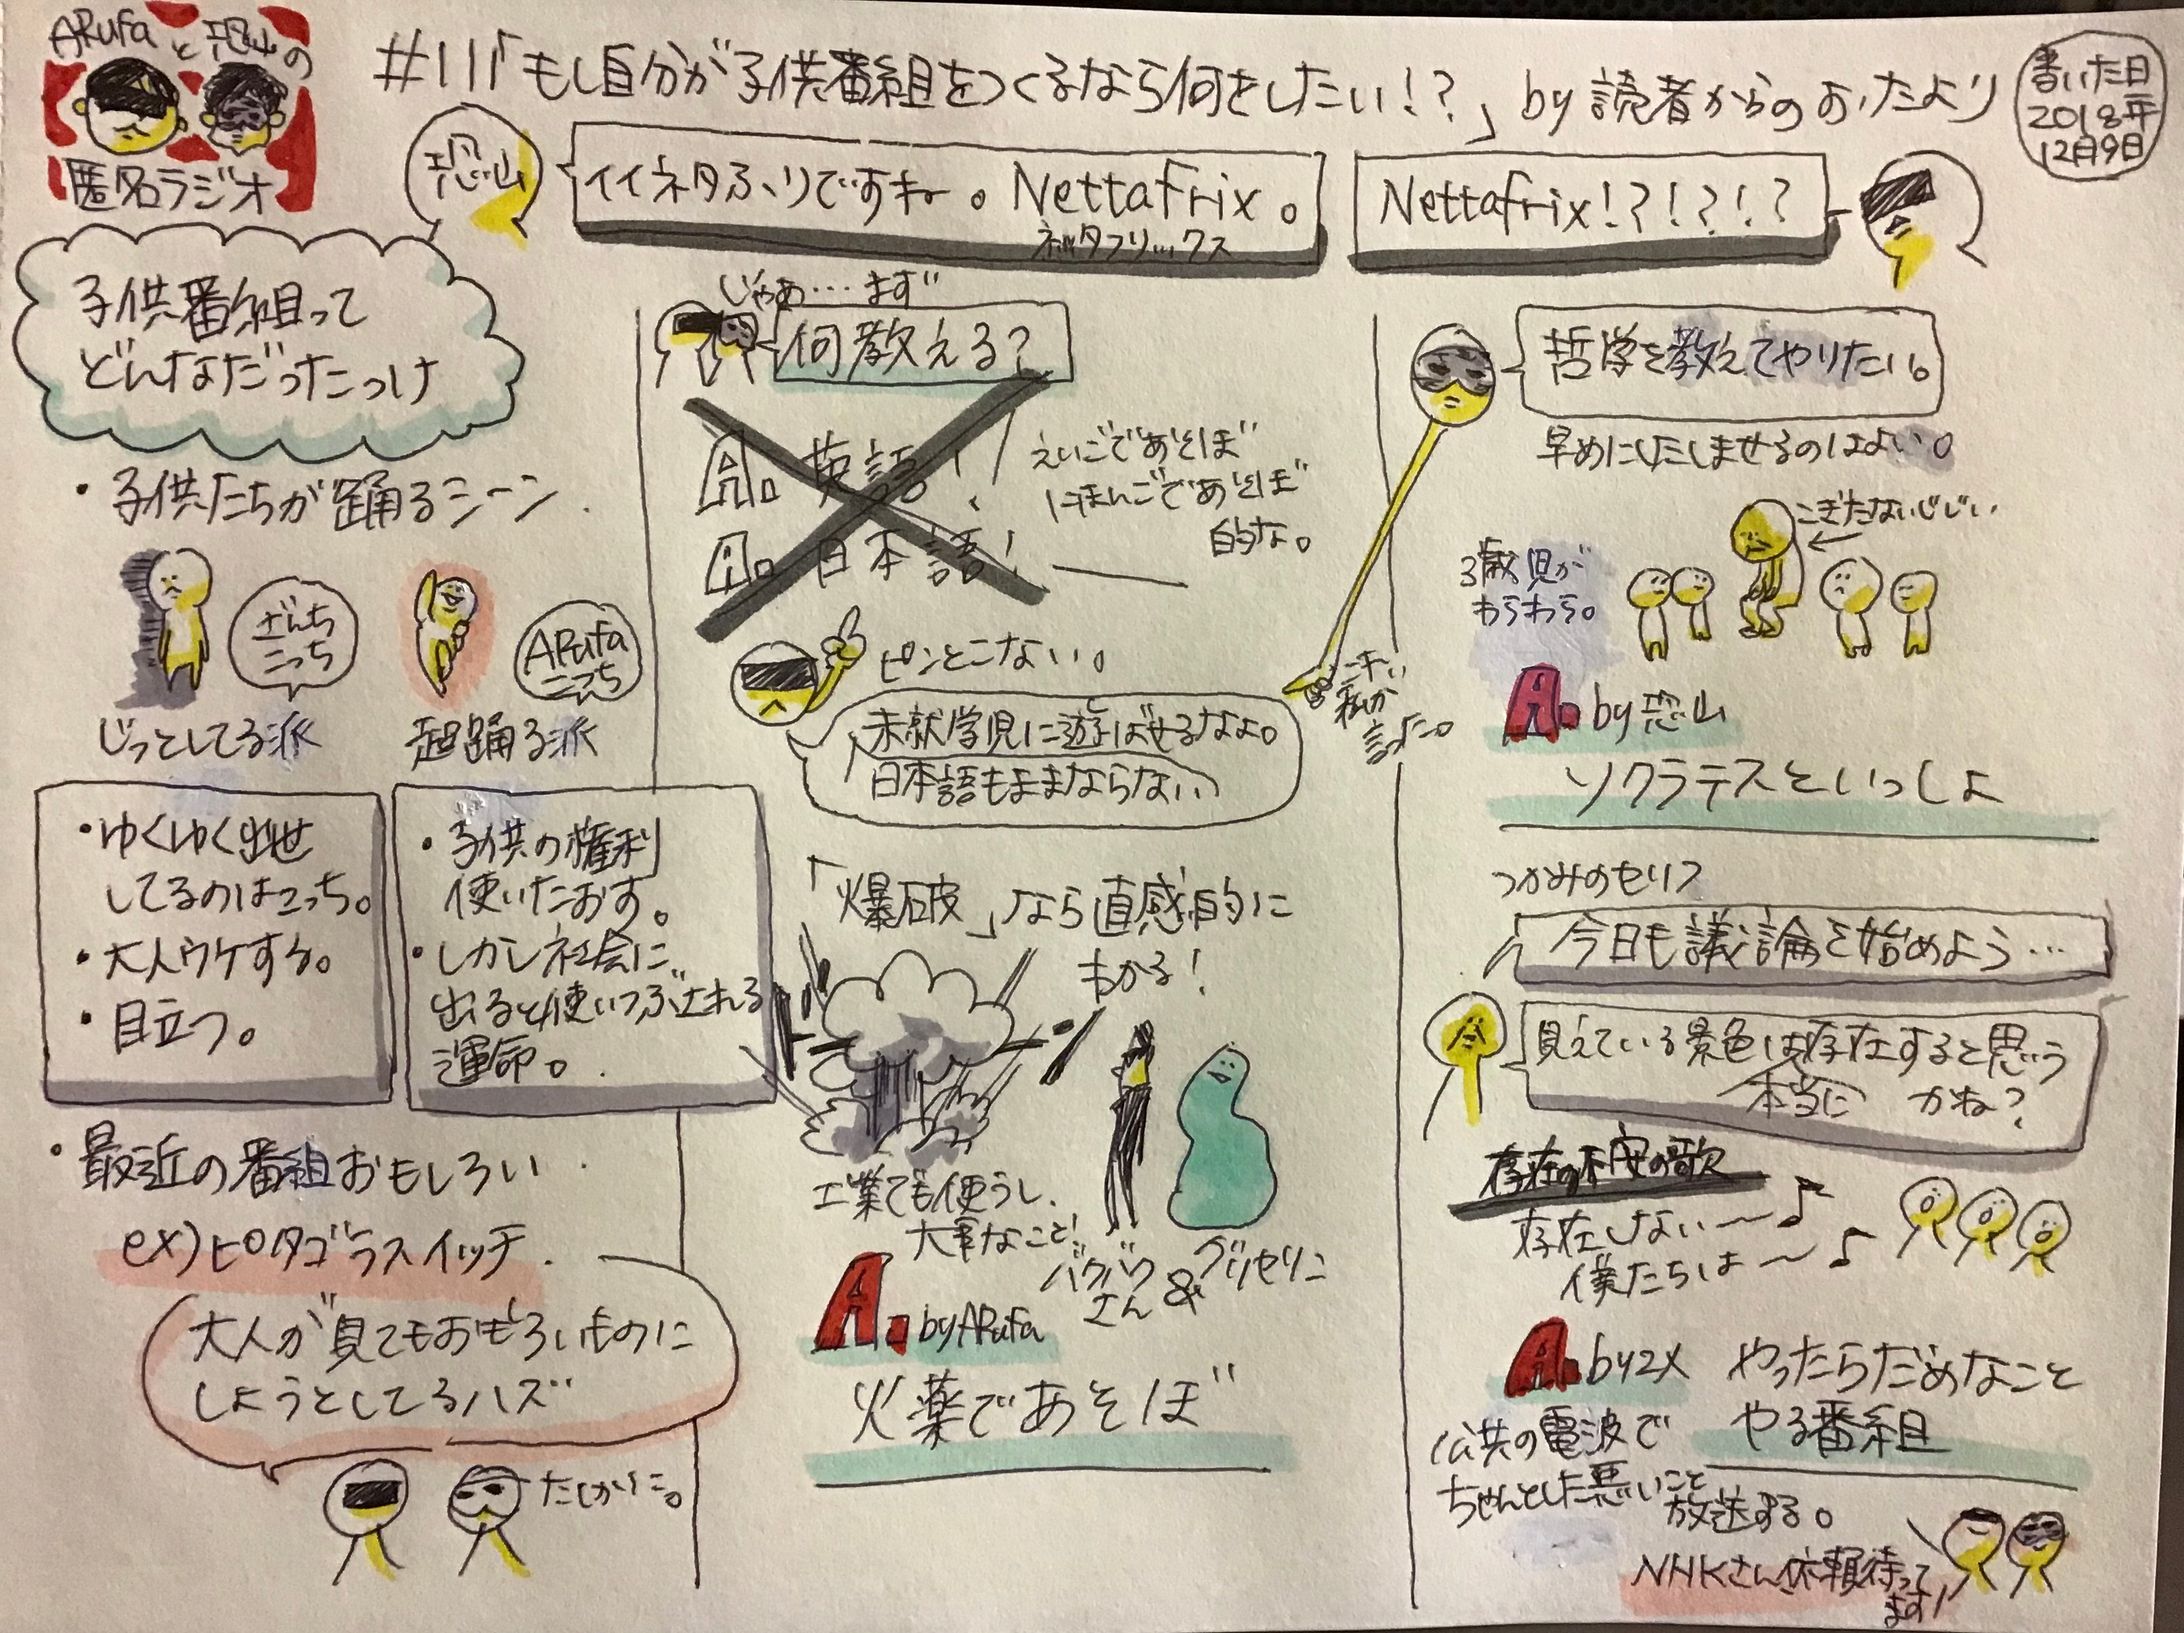 ARuFaと恐山の
匿名ラジオ
#111「もし自分が子供番組をつくるなら何をしたい!?」by読者からのおたより
書いた日
2018年
12月9日
恐山
イイネタふりですね。Nettafrix。
ネッタフリックス
Nettafrix!?!?!?
子供番組って
どんなだったっけ
・子供たちが踊るシーン
ぎんち
こっち
ARuFa
こっち
じっとしてる派
超踊る派
・ゆくゆく出世
してるのはこっち。
・大人ウケする。
・目立つ。
・子供の権利
使いたおす。
・しかし社会に
出ると使いつぶされる
運命。
・最近の番組おもしろい
ex)ピタゴラスイッチ
大人が見てもおもしろいものに
しようとしてるハズ
たしかに。
じゃあ…まず
何教える?
A. 英語!
A. 日本語!
えいごであそぼ
にほんごであそぼ
的な。
ピンとこない。
未就学児に遊ばせるなよ。
日本語もままならない
「爆破」なら直感的に
わかる!
工業でも使うし、
大事なこと!
バクバク
さん
&
グリセリン
A. by ARuFa
火薬であそぼ
哲学を教えてやりたい。
早めにしたしませるのはよい。
こぎたないじじい
3歳児が
わらわら。
私が
言った。
A. by 恐山
ソクラテスといっしょ
つかみのセリフ
今日も議論を始めよう…
見えている景色は存在すると思う
本当に かね?
存在の不安の歌
存在しない〜♪
僕たちは〜♪
A. by 2人 やったらだめなこと
やる番組
公共の電波で
ちゃんとした悪いこと
放送する。
NHKさん依頼待って
ます!